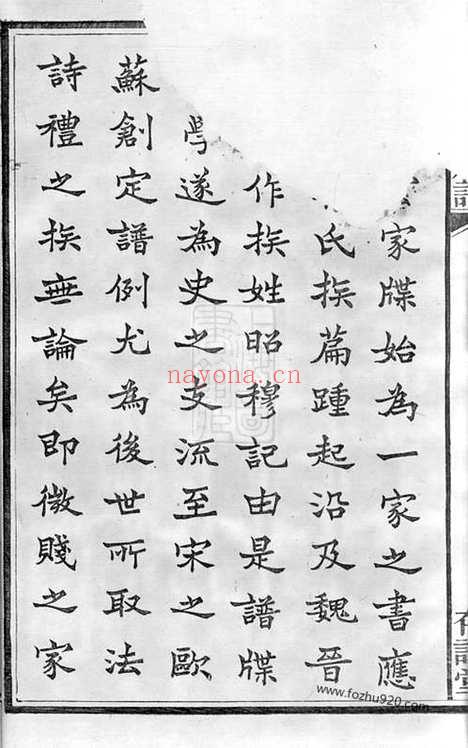 家牒始為一家之書應
氏族篇踵起沿及魏晉
作族姓昭穆記由是譜牒
學遂為史之支流至宋之歐
蘇創定譜例尤為後世所取法
詩禮之族無論矣即微賤之家
nayona.cn
www.fozhu920.com